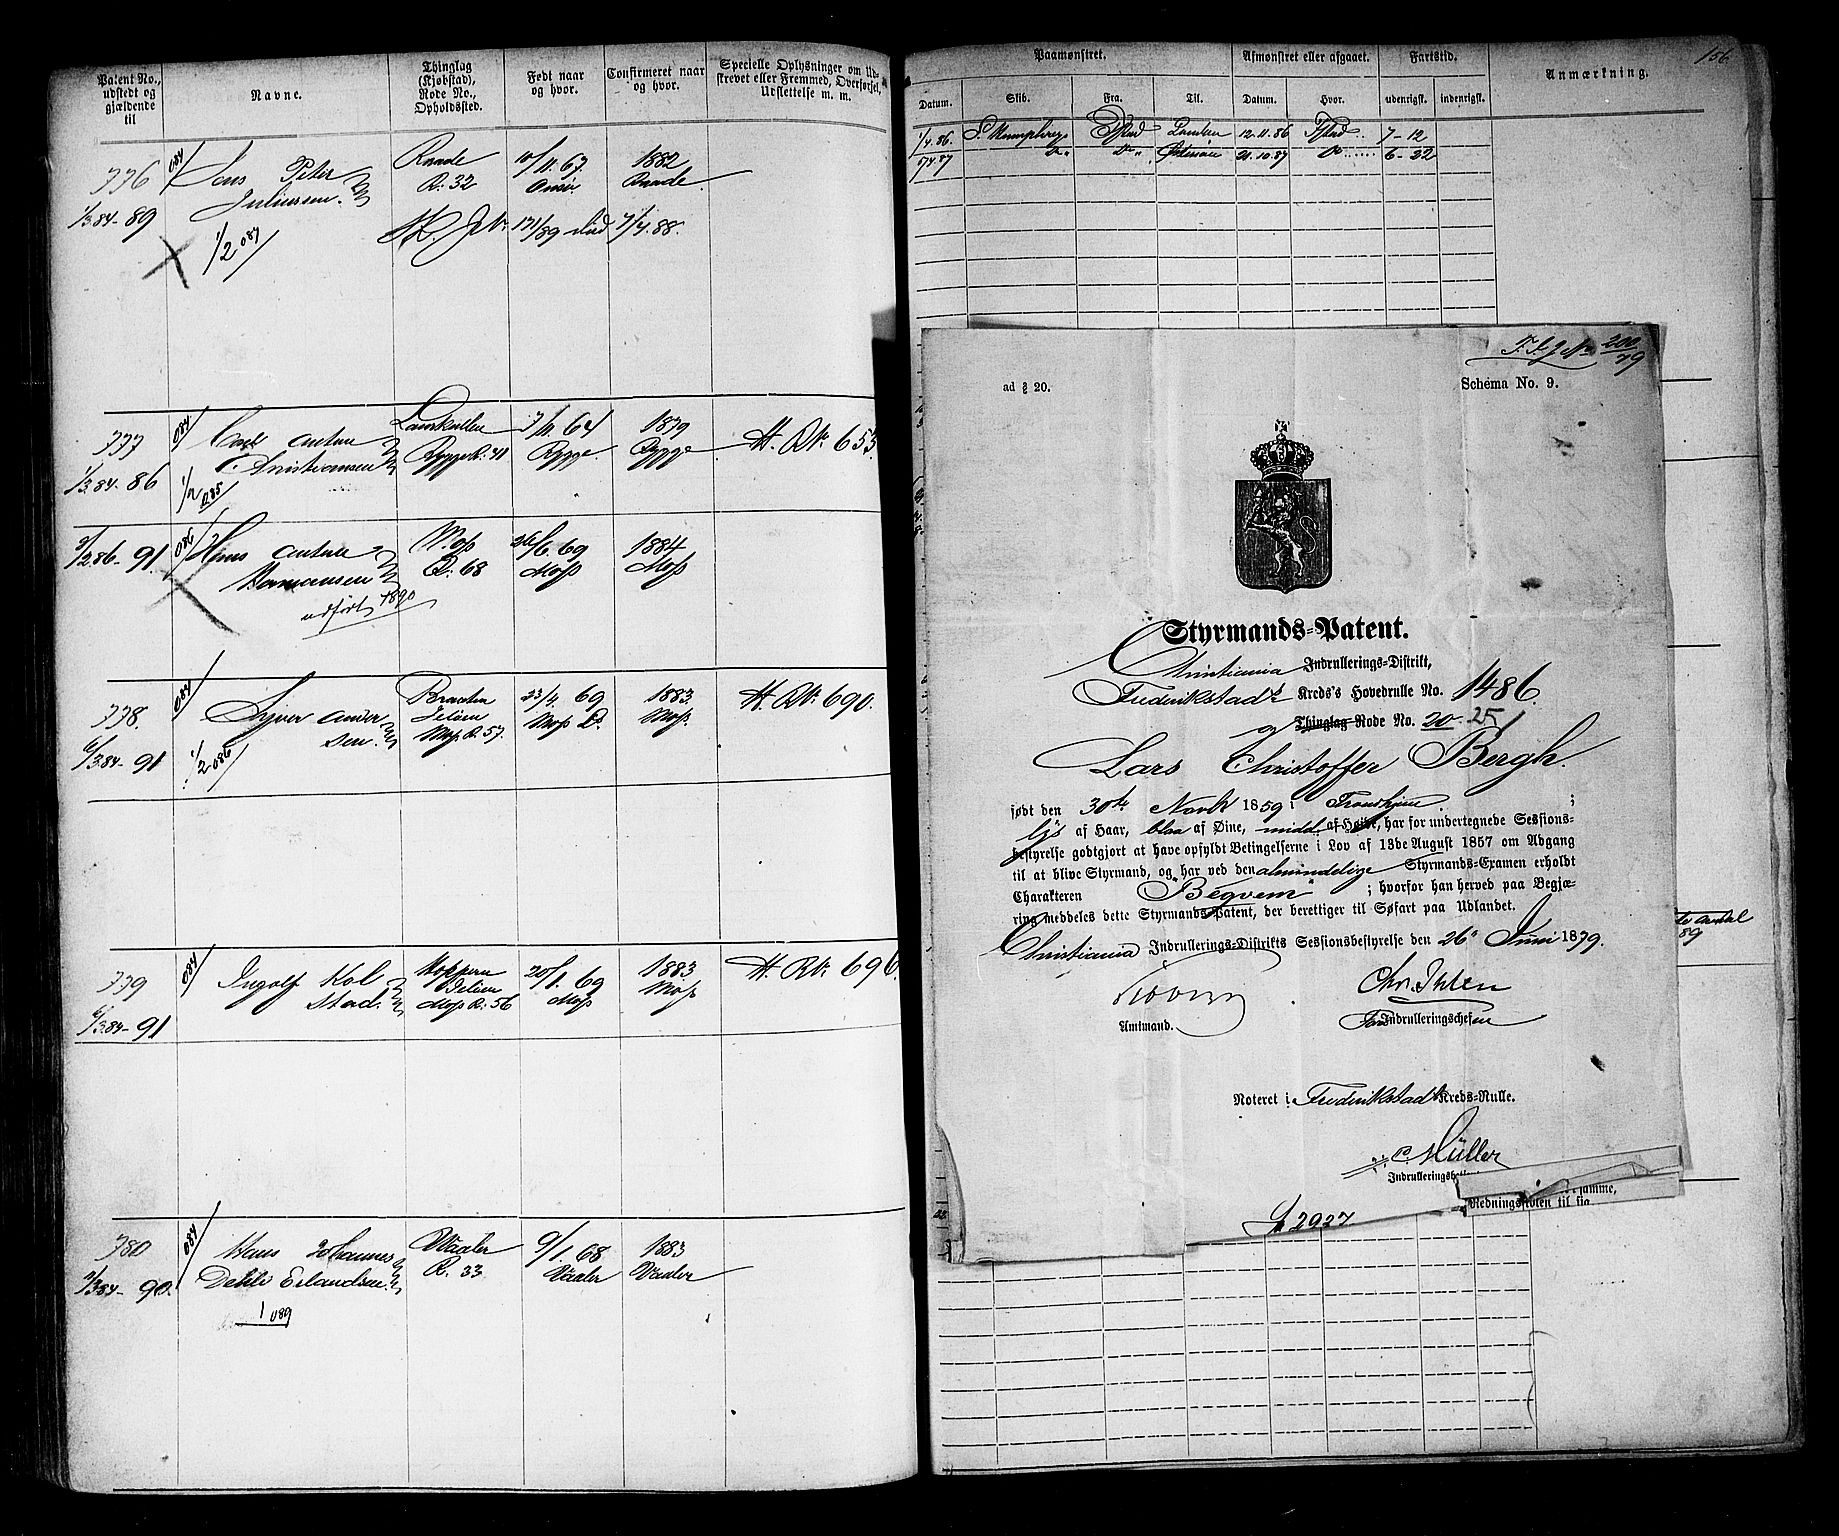 Patent No., udstedt og gjældende til
Navne.
Thinglag (Kjøbstad), Rode No., Opholdssted.
Født naar og hvor.
Confirmeret naar og hvor.
Specielle Oplysninger om Udskrevet eller Fremmed, Overførsel, Udslettelse m. m.
776
1/3 84-89
084
Jens Peter
Juliussen.
1/2 087
Raade
R. 32
10/11. 67
Onsø.
1882
Raade.
17/1 89
7/4. 88.
777
1/3 84-86
084
Carl Anton
Christiansen
1/2 085
Larkullen
Rygge R. 41
7/11 64
Rygge.
1879
Rygge
H. R№ 653
3/2 86-91.
086
Hans Anton
Hermansen
udført 1890
Moss
R. 68
26/6. 69
Moss
1884
Moss
778.
6/3 84-91
084
Syver Ander
sen.
1/2 086
Braaten
Jeløen
Moss R. 57.
23/4. 69
Moss L.
1883.
Moss.
H. R№ 690.
779
6/3 84-91
084
Ingolf Kol
stad.
Koppern
Jeløen
Moss R. 56
20/1. 69
Moss
1883
Moss
H. R№ 696
780
11/3 84-90.
084
Hans Johannes
Dehli Erlandsen.
1 089
Vaaler
R. 33
9/1. 68
Vaaler
1883
Vaaler
156
Paamønstret.
Afmønstret eller afgaaet.
Fartstid.
Anmærkning.
Datum.
Skib.
Fra.
Til.
Datum.
Hvor.
udenrigsk.
indenrigsk.
1/4. 86. S. Humphreys Fstad London 12.11.86 Fstad 7-12
Do Do 21.10.87 Do 6-22
200/79
ad § 20.
Schema No. 9.
Styrmands-Patent.
Christiania Indrullerings-Distrikt,
Frederikstads Kreds's Hovedrulle No. 1486.
og Thinglag Rode No. 20 25
Lars Christoffer Bergh.
født den 30te Novbr 1859 i Trondhjem ;
lys af Haar, blaa af Øine, midd. af Høide, har for undertegnede Sessions-
bestyrelse godtgjort at have opfyldt Betingelserne i Lov af 13de August 1857 om Adgang
til at blive Styrmand, og har ved den almindelige Styrmands-Examen erholdt
Charakteren "Beqvem" ; hvorfor han herved paa Begjæ-
ring meddeles dette Styrmands-Patent, der berettiger til Søfart paa Udlandet.
Christiania Indrullerings-Distrikts Sessionsbestyrelse den 26' Juni 1879.
Chr. Ihlen
Amtmand.
For Indrulleringschefen
Noteret i Frederikstads Kreds-Rulle.
C. Müller
Redningsfloten til sig
2927